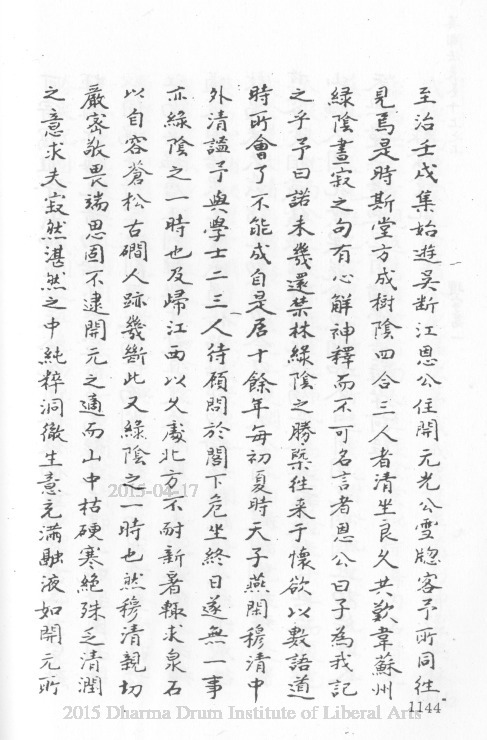 至治壬戌集始遊吴断江恩公住開元光公雪牕客予所同徃
見焉是時斯堂方成樹陰四合三人者清坐良久共歎韋蘇州
緑陰晝寂之句有心觧神釋而不可名言者恩公曰子為我記
之乎予曰諾未幾還禁林緑陰之勝槩徃来于懐欲以數語道
時所會了不能成自是居十餘年每初夏時天子燕閑穆清中
外清謐予與學士二三人待顧問於閣下危坐終日遂無一事
亦緑陰之一時也及歸江西以久處北方不耐新暑輙求泉石
以自容蒼松古磵人跡幾斷此又緑陰之一時也然穆清親切
嚴宻敬畏端思固不逮開元之適而山中枯硬寒絶殊乏清潤
之意求夫寂然湛然之中純粹洞徹生意充滿融液如開元所
1144
2015-04-17
2015 Dharma Drum Institute of Liberal Arts